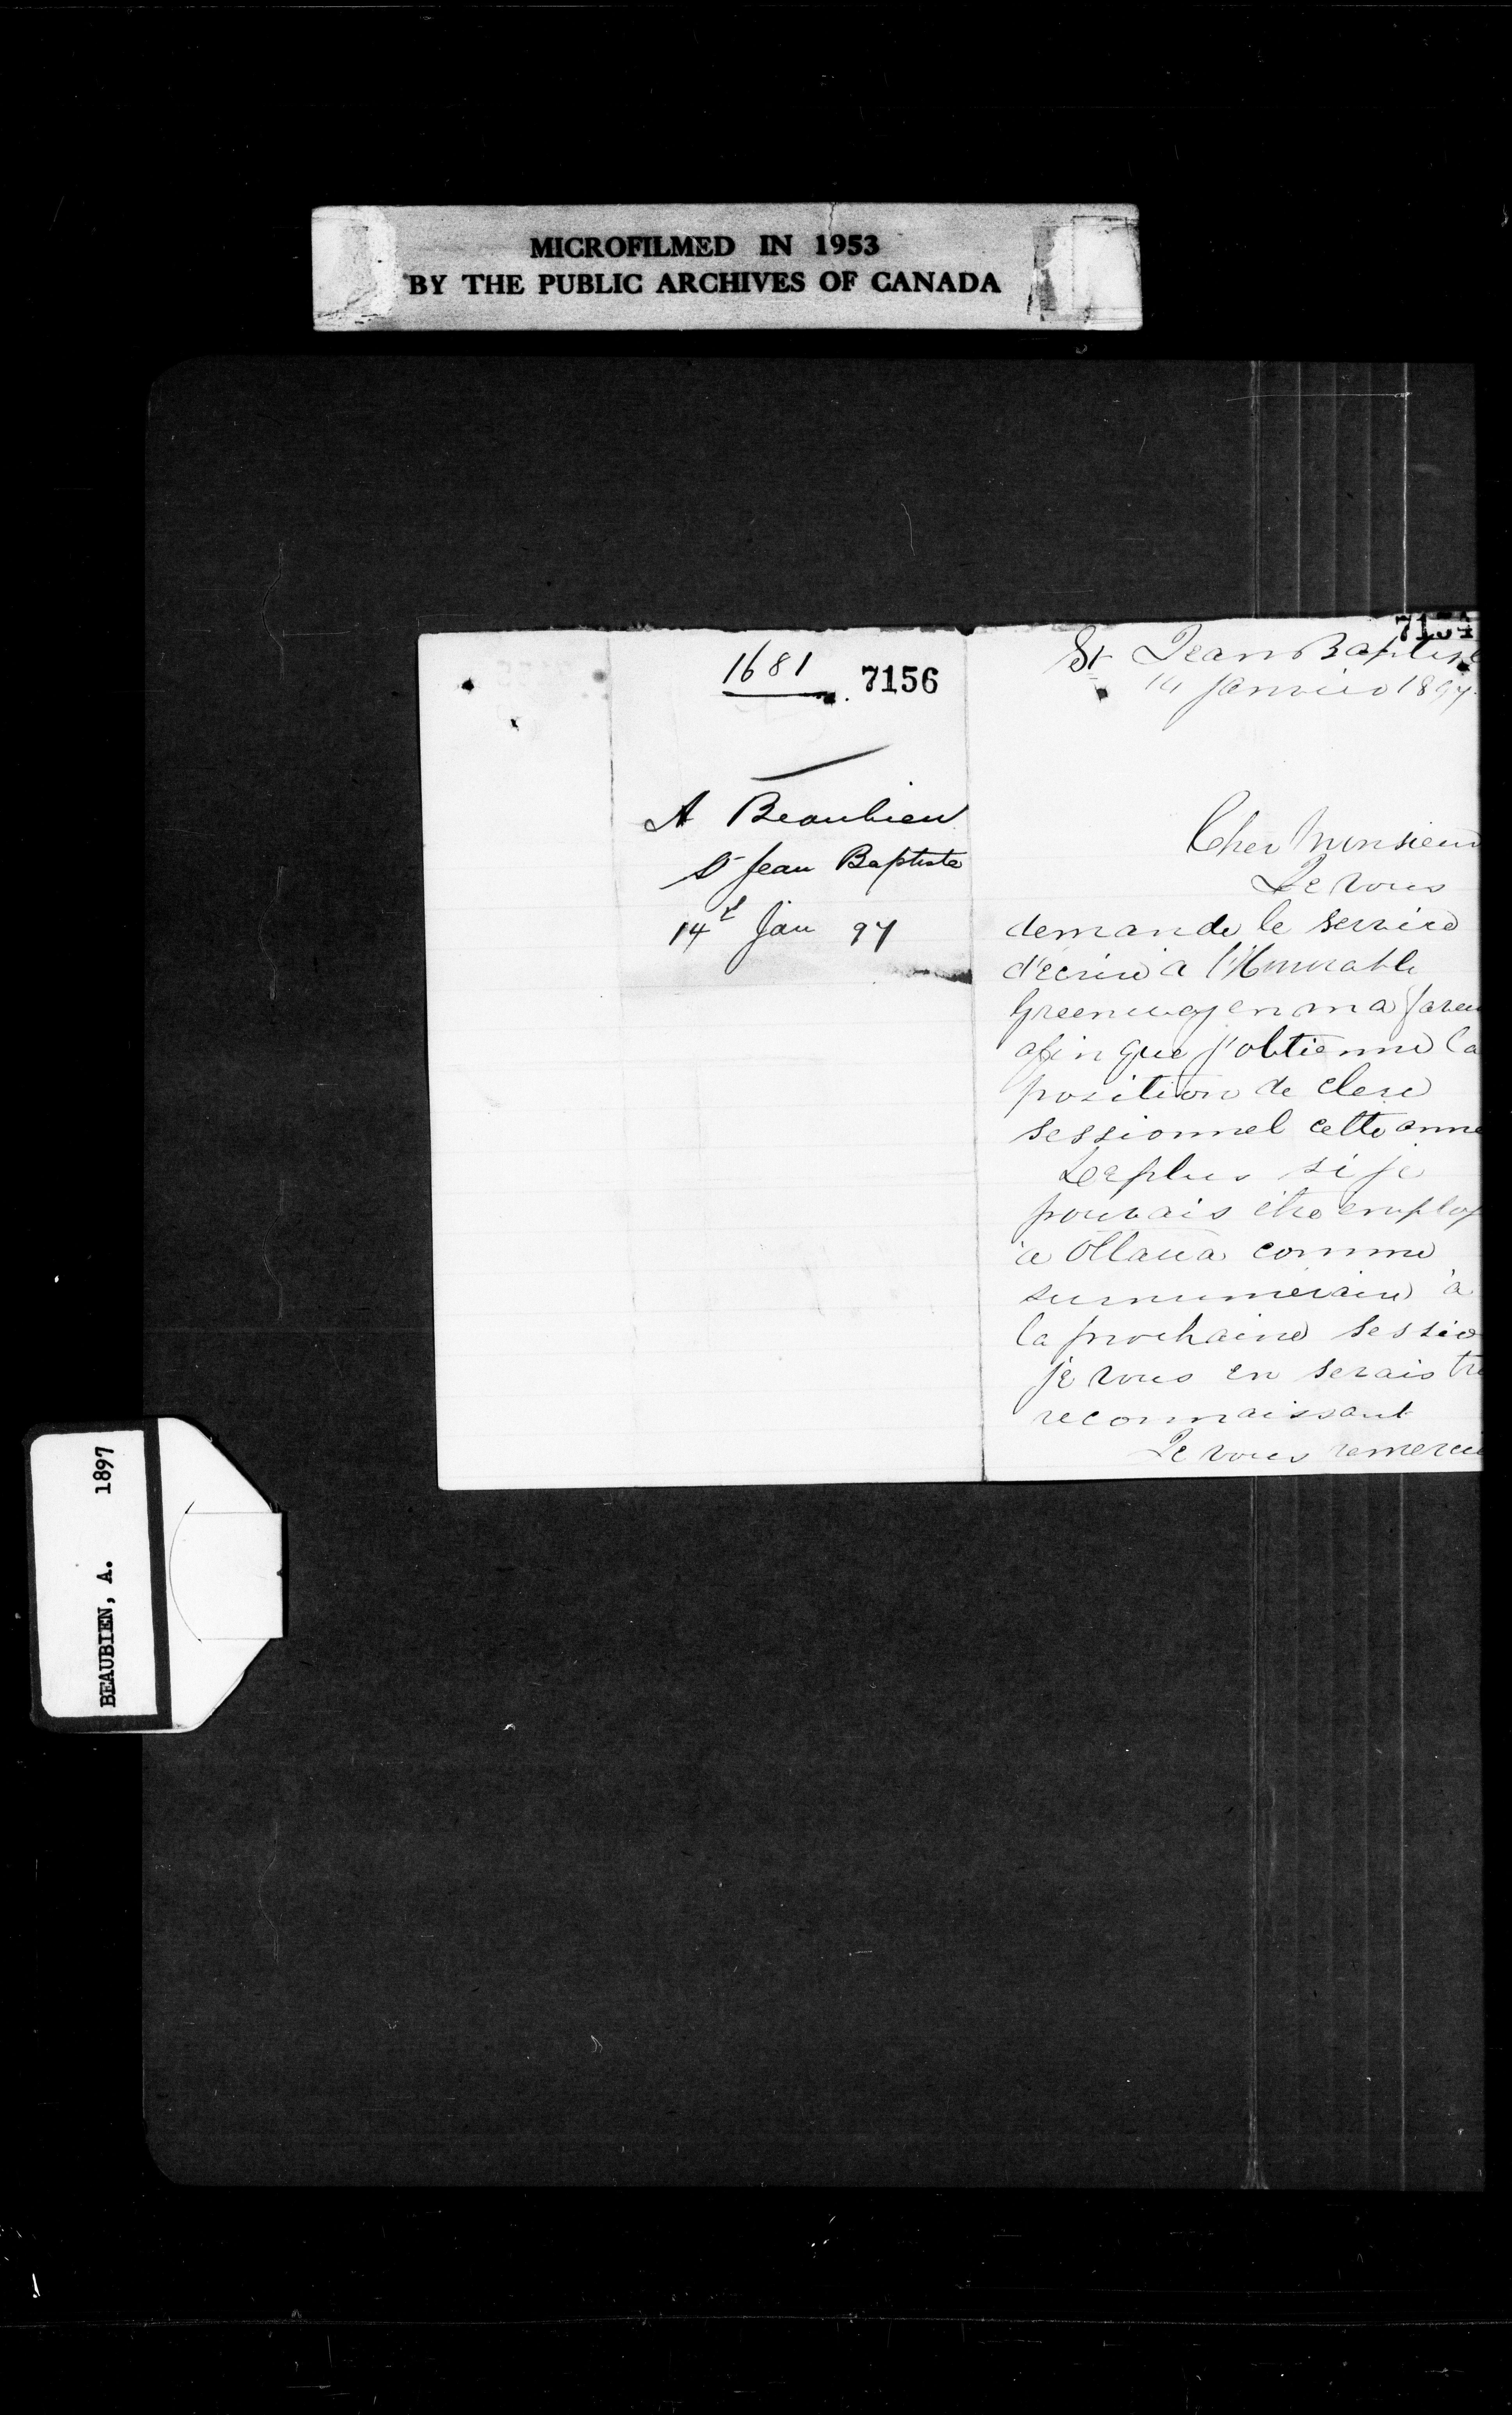 MICROFILMED IN 1953
BY THE PUBLIC ARCHIVES OF CANADA
1681 7156
A Beaubien
St Jean Baptiste
14t Jan 97
7154
St Jean Baptiste
14 Janvier 1897
Cher Monsieur
Je vous
demande le service
d'écrire à l'Honorable
Greenway en ma faveu
afin que j'obtienne la
position de clerc
sessionnel cette anné
De plus si je
pouvais être employ
à Ottawa comme
surnuméraire à
la prochaine sessio
je vous en serais trè
reconnaissant
Je vous remercie
BEAUBIEN, A. 1897